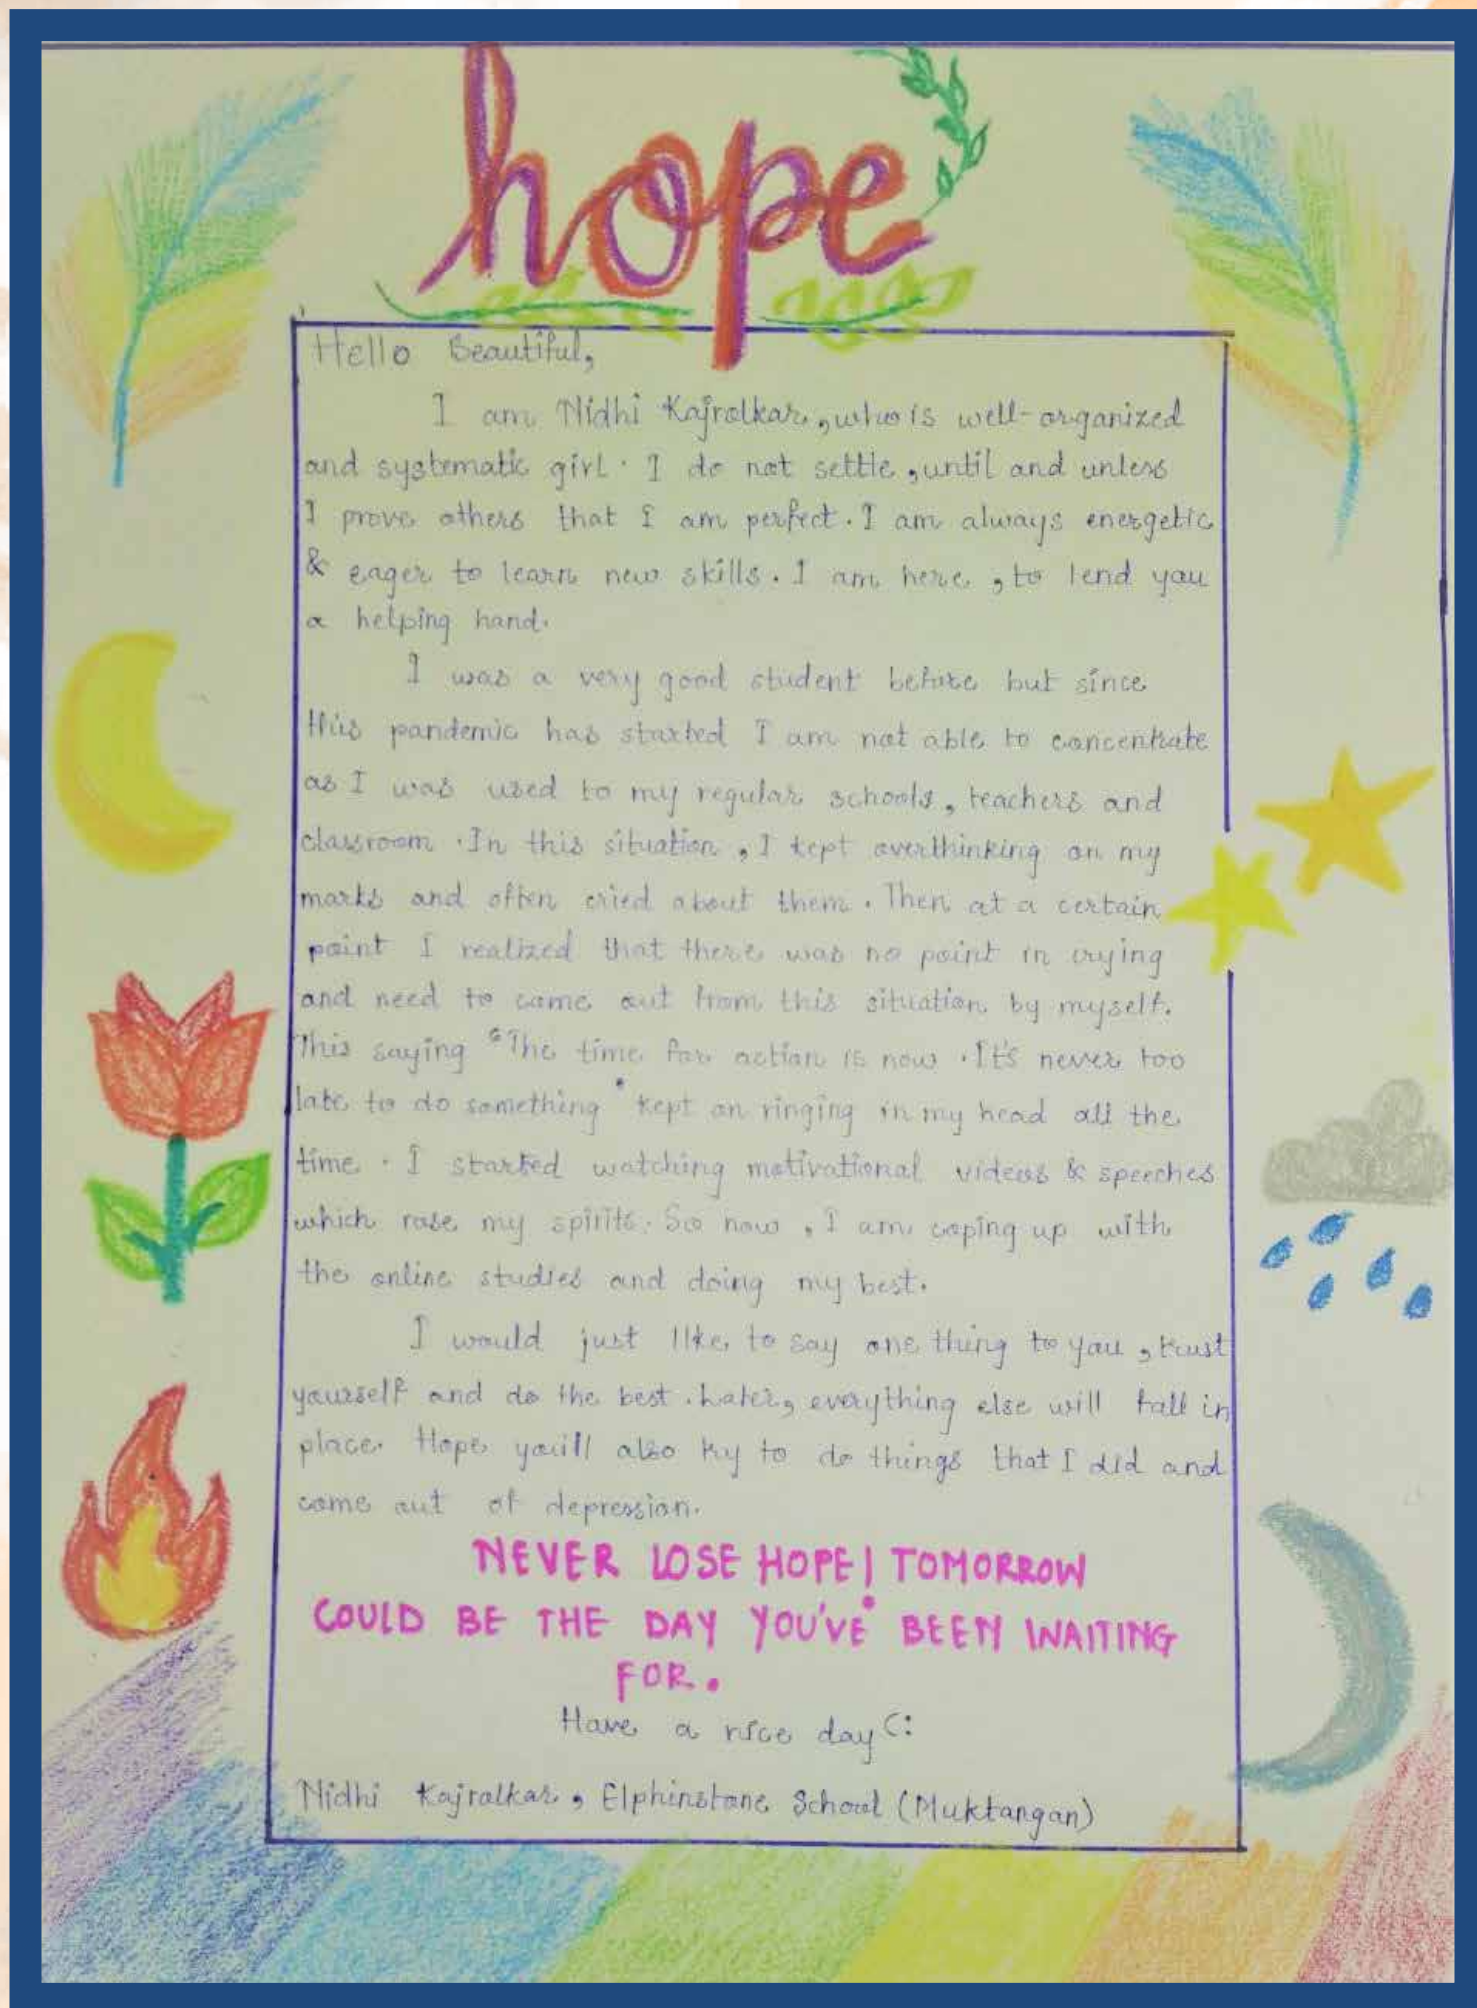 hope
Hello Beautiful,
I am Nidhi Kajrolkar, who is well-organized
and systematic girl. I do not settle, until and unless
I prove others that I am perfect. I am always energetic
& eager to learn new skills. I am here, to lend you
a helping hand.
I was a very good student before but since
this pandemic has started I am not able to concentrate
as I was used to my regular schools, teachers and
classroom. In this situation, I kept overthinking on my
marks and often cried about them. Then at a certain
point I realized that there was no point in crying
and need to come out from this situation by myself.
This saying "The time for action is now. It's never too
late to do something" kept on ringing in my head all the
time. I started watching motivational videos & speeches
which rose my spirits. So now, I am coping up with
the online studies and doing my best.
I would just like to say one thing to you, trust
yourself and do the best. Later, everything else will fall in
place. Hope you'll also try to do things that I did and
come out of depression.
NEVER LOSE HOPE! TOMORROW
COULD BE THE DAY YOU'VE BEEN WAITING
FOR.
Have a nice day C:
Nidhi Kajrolkar, Elphinstone School (Muktangan)